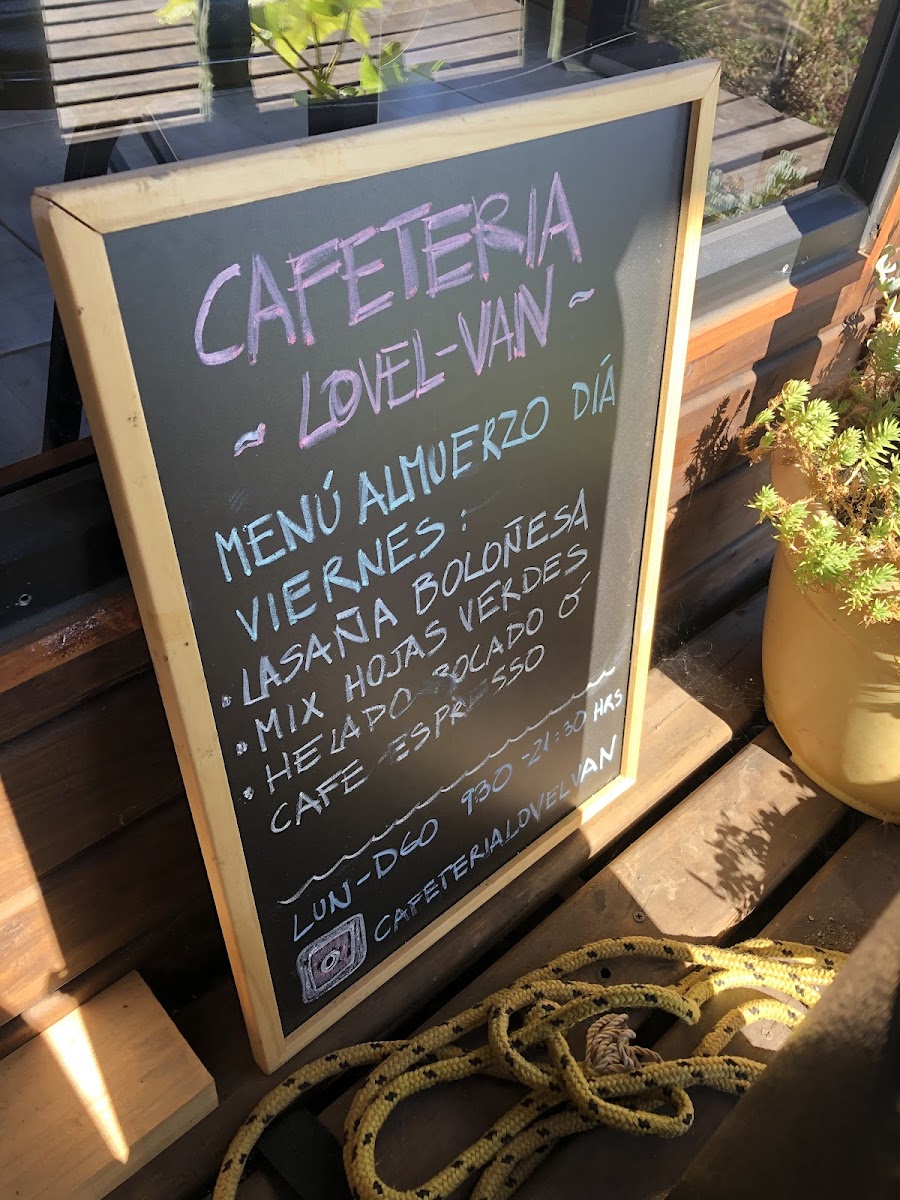 CAFETERIA
~ LOVEL-VAN ~
MENÚ ALMUERZO DÍÁ
VIERNES:
· LASAÑA BOLOÑESA
· MIX HOJAS VERDES
· HELADO BOCADO Ó
CAFE ESPRESSO
LUN-DGO 930-21:30 HRS
CAFETERIALOVELVAN